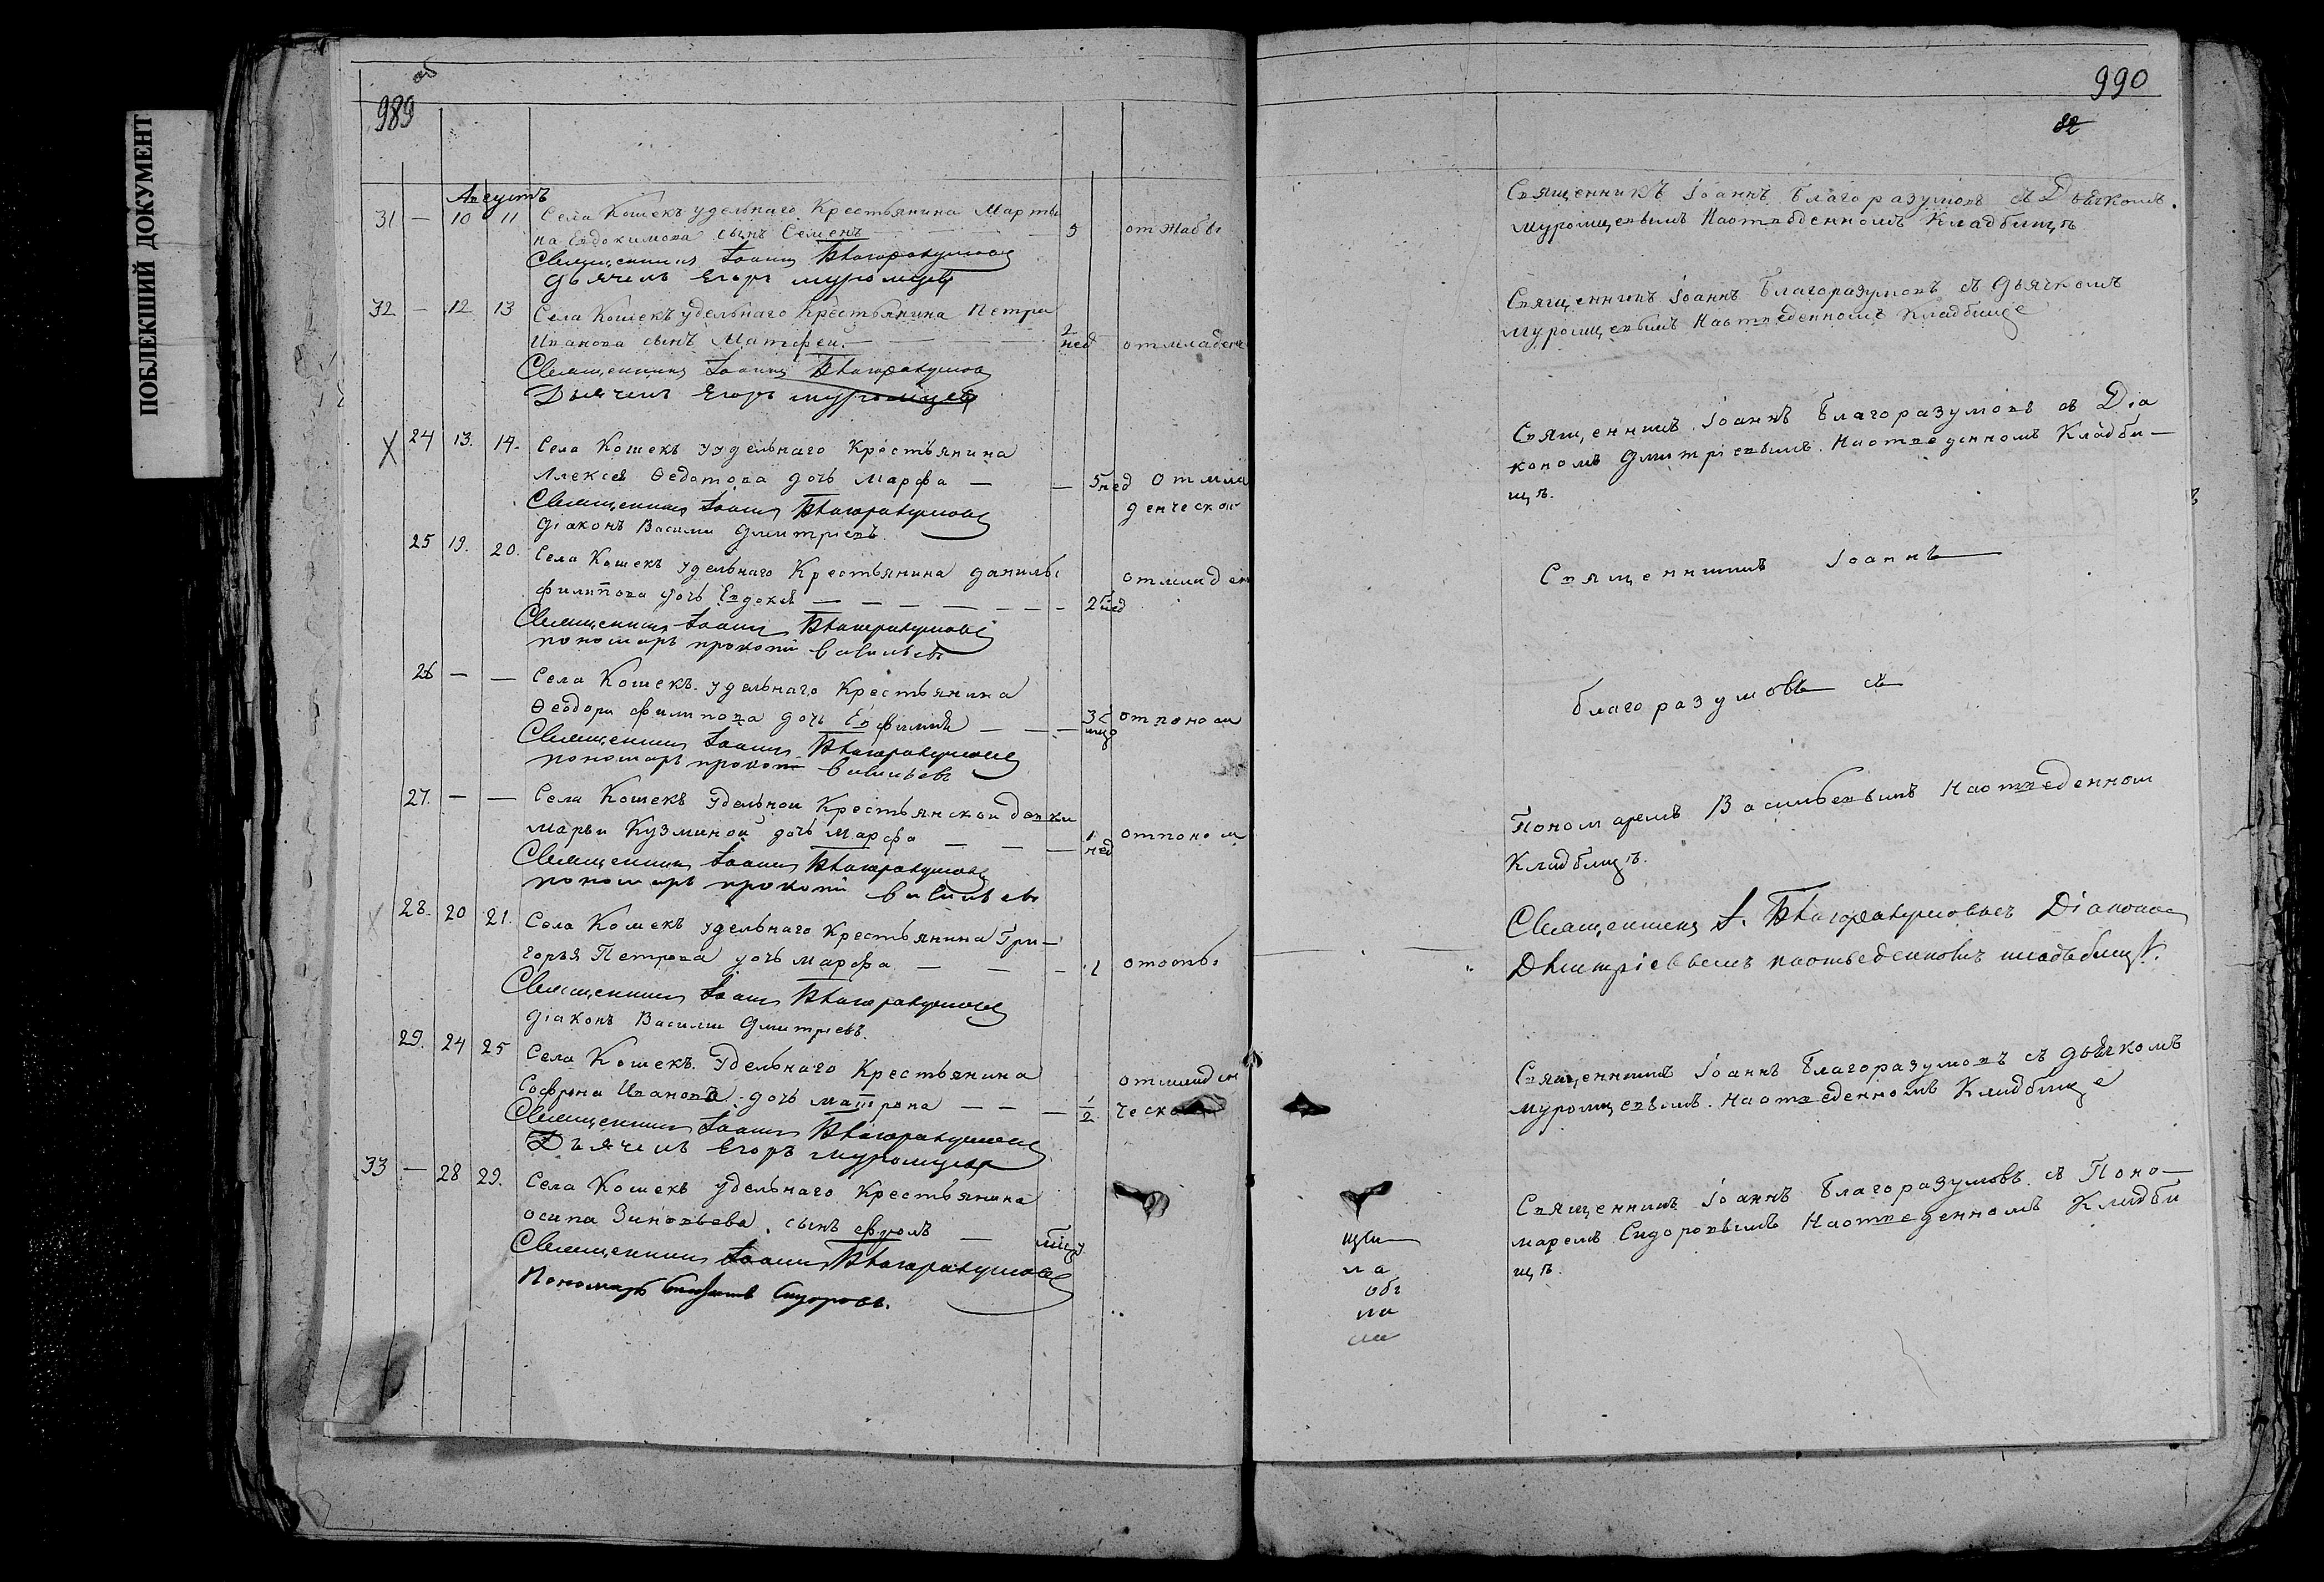 ПОБЛЕКШИЙ ДОКУМЕНТ
об
989
Августъ
31 — 10 11 Села Кошекъ удельнаго Крестьянина Марты
на Евдокимова сынъ Семенъ — — — 5 от жабы
Священникъ Іоаннъ Благоразумовъ
Дьячекъ Егоръ Муромцевъ
32 — 12 13 Села Кошекъ удельнаго Крестьянина Петра
Иванова сынъ Матфей — — — 2 нед отмладен
Священникъ Іоаннъ Благоразумовъ
Дьячекъ Егоръ Муромцевъ
X 24 13. 14. Села Кошекъ Удельнаго Крестьянина
Алексея Ѳедотова дочь Марфа — — 5 нед Отмла
Священникъ Іоаннъ Благоразумовъ денческой
Діаконъ Василий Дмитріевъ
25 19. 20. Села Кошекъ Удельнаго Крестьянина Данилы
Филипова дочь Евдокея — — — — 2 нед отмладен
Священникъ Іоаннъ Благоразумовъ
пономарь Прокопій Васильевъ
26 — — Села Кошекъ удельнаго Крестьянина
Ѳеодора Филипова дочь Евфимія — — — 3 отпонош
Священникъ Іоаннъ Благоразумовъ
пономарь Прокопій Васильевъ
27. — — Села Кошекъ Удельной Крестьянской девки
Марьи Кузминой дочь Марфа — — — 1 нед отпонош
Священникъ Іоаннъ Благоразумовъ
пономарь Прокопій Васильевъ
28. 20 21. Села Кошекъ Удельнаго Крестьянина Гри-
горья Петрова дочь Марфа — — — 1 отоспы
Священникъ Іоаннъ Благоразумовъ
Діаконъ Василии Дмитріевъ.
29. 24 25 Села Кошекъ Удельнаго Крестьянина
Софрона Иванова дочь Матрона — — — 1/2 отмладен
ческо
Священникъ Іоаннъ Благоразумовъ
Дьячекъ Егоръ Муромцевъ
33 — 28 29. Села Кошекъ Удельнаго Крестьянина
Осипа Зиновьева сынъ Фролъ —
Священникъ Іоаннъ Благоразумовъ
Пономарь Сидоровъ.
990
82
Священникъ Іоаннъ Благоразумовъ съ Дьячкомъ
Муромцевымъ Наотведенномъ Кладбищъ
Священникъ Іоаннъ Благоразумовъ съ Дьячкомъ
Муромцевымъ Наотведенномъ Кладбище
Священникъ Іоаннъ Благоразумовъ съ Діа
кономъ Дмитріевымъ Наотведенномъ Кладби—
щъ.
Священникъ Іоаннъ
благоразумовъ съ
Пономаремъ Васильевымъ Наотведенном
Кладбищъ.
Священникъ І. Благоразумовъ съ Діакономъ
Дмитріевымъ наотведенномъ кладбищѣ.
Священникъ Іоаннъ Благоразумовъ съ дьячкомъ
Муромцевымъ Наотведенномъ Кладбище
Священникъ Іоаннъ Благоразумовъ съ Поно—
маремъ Сидоровымъ Наотведенномъ Кладби
щъ.